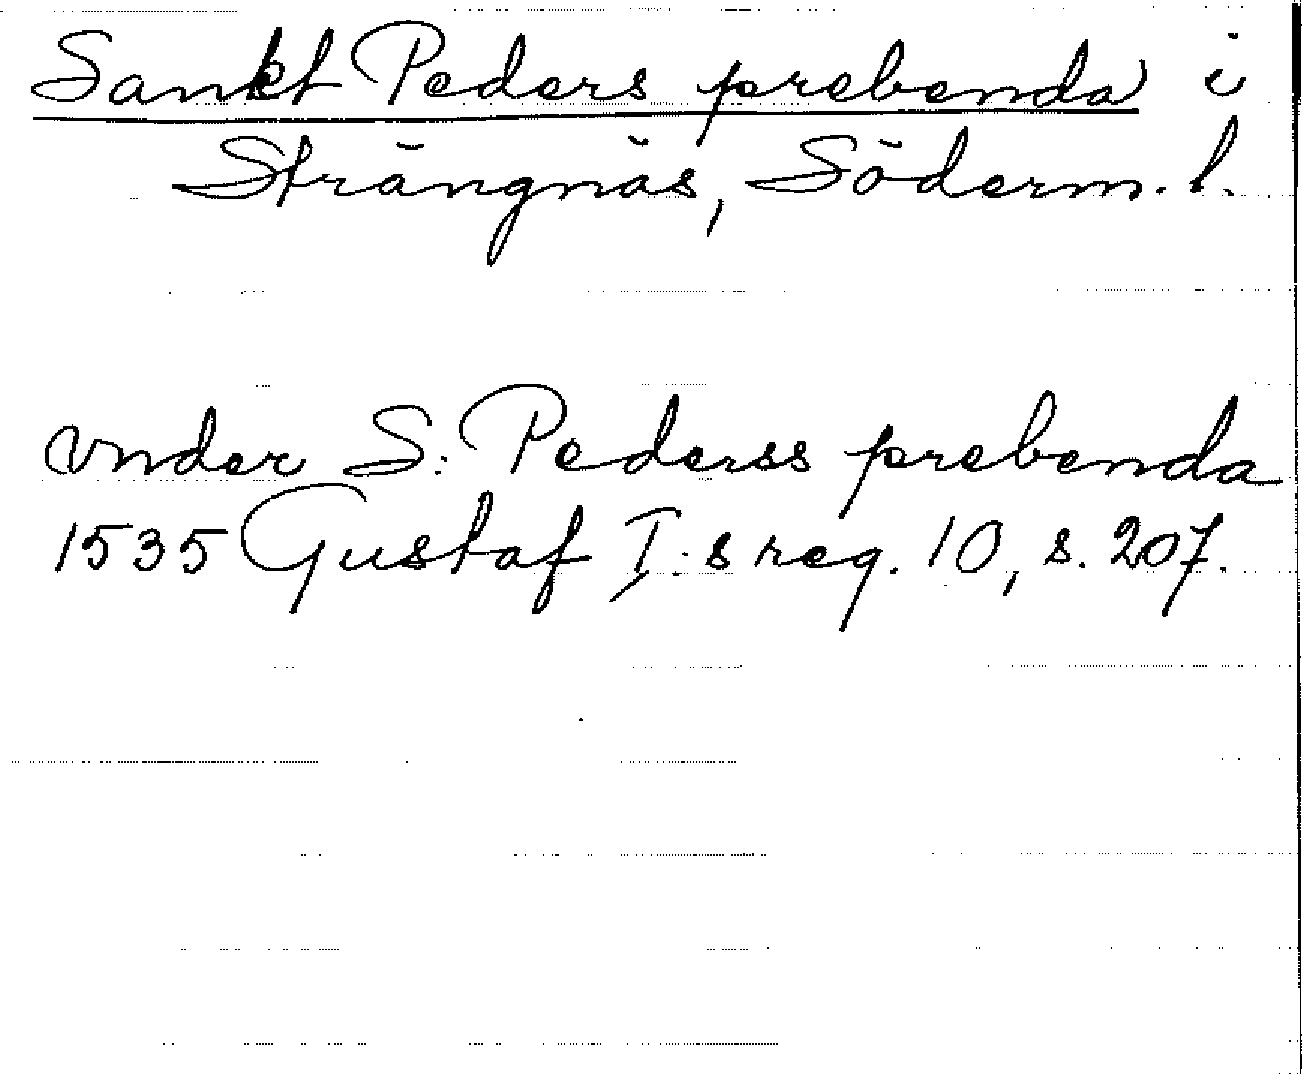 Sankt Peders prebenda i
Strängnäs, Söderm. l.
vnder S: Pederss prebenda
1535 Gustaf I:s reg. 10, s. 207.